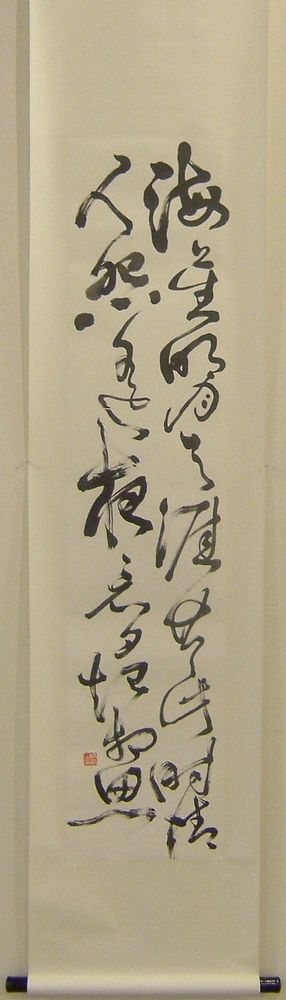 海上生明月天涯共此時情
人怨遙夜竟夕起相思